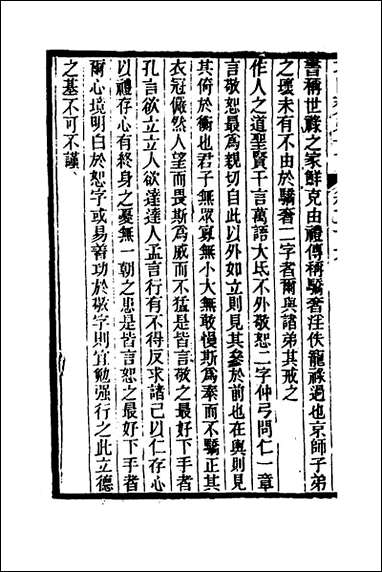 書稱世祿之家鮮克由禮傳稱驕奢淫佚寵祿過也京師子弟
之壞未有不由於驕奢二字者爾與諸弟其戒之
作人之道聖賢千言萬語大氐不外敬恕二字仲弓問仁一章
言敬恕最爲親切自此以外如立則見其參於前也在輿則見
其倚於衡也君子無眾寡無小大無敢慢斯爲泰而不驕正其
衣冠儼然人望而畏斯爲威而不猛是皆言敬之最好下手者
孔言欲立立人欲達達人孟言行有不得反求諸己以仁存心
以禮存心有終身之憂無一朝之患是皆言恕之最好下手者
爾心境明白於恕字或易著功於敬字則宜勉强行之此立德
之基不可不謹、